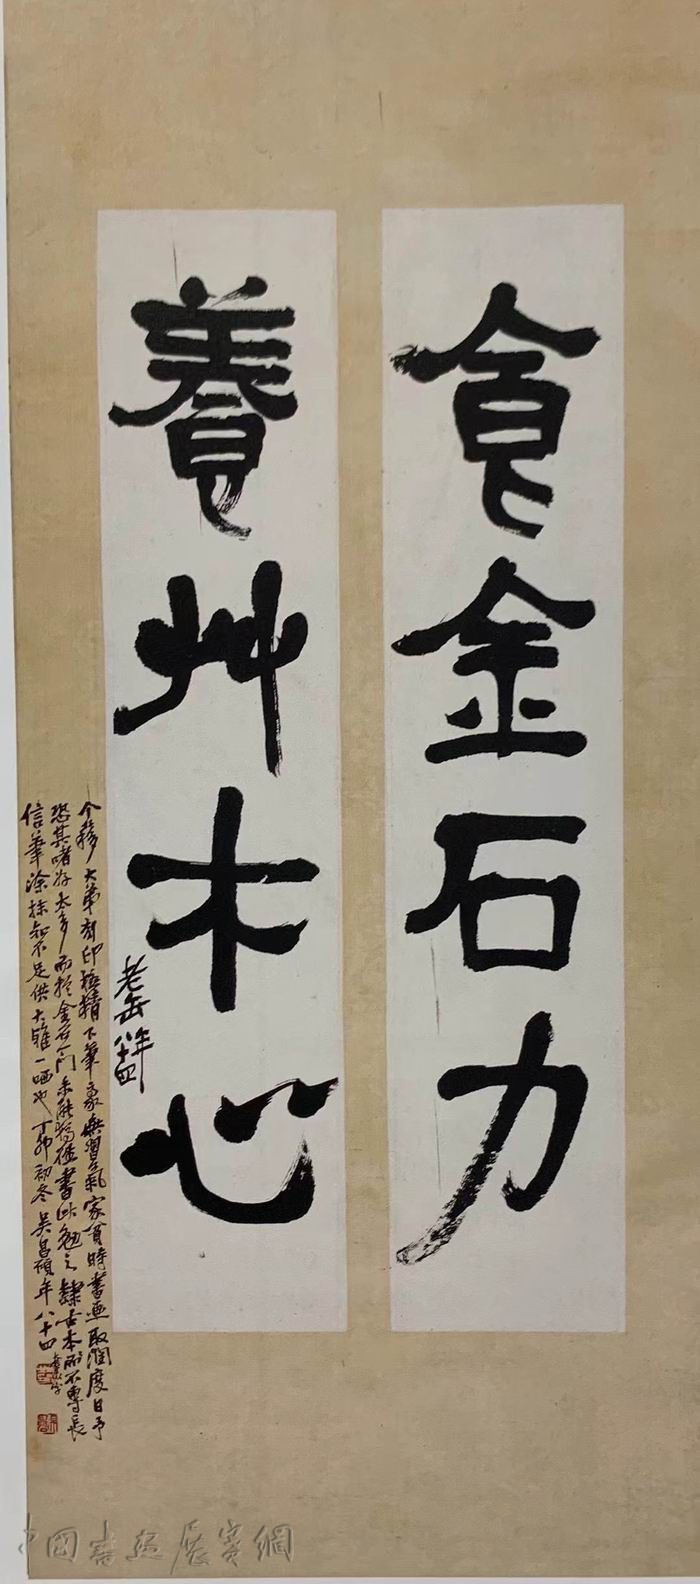 食金石力
養艸木心
老缶年八十四
个簃大弟刻印極精下筆豪無習氣家貧時書画取潤度日予
恐其嗜好太多而於金石門未能精進書此勉之隸古本所不專長
信筆涂抹知不足供大雅一哂也丁卯初冬吳昌碩年八十四
中國書画展賽網